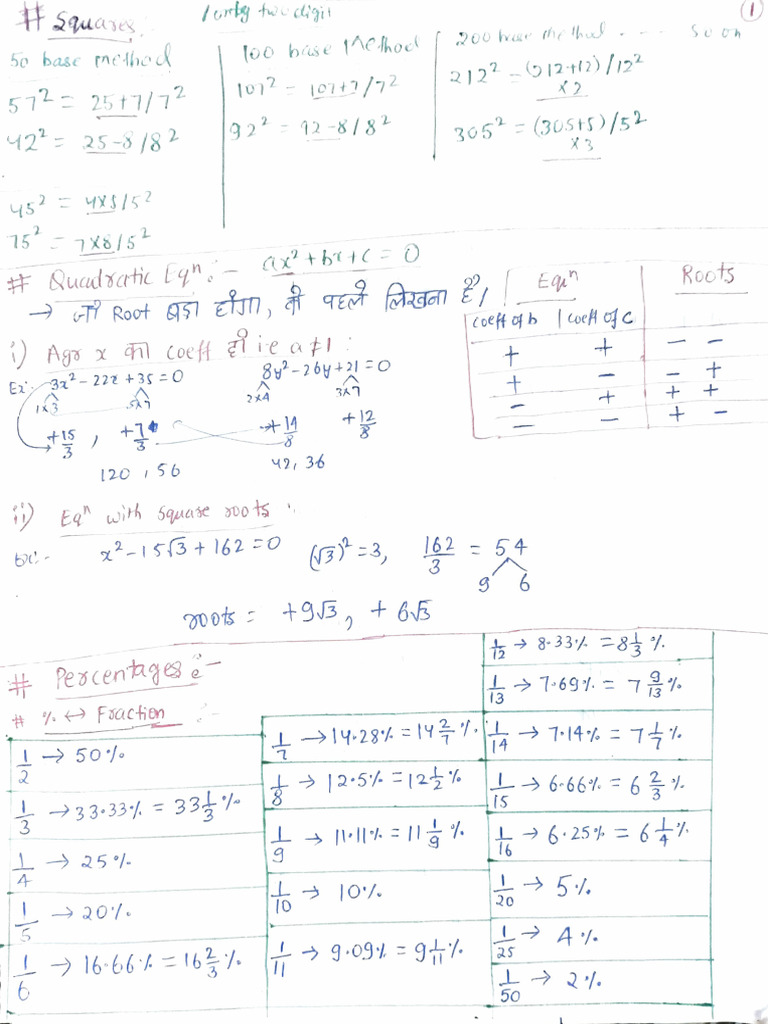 # Squares :
/ only two digit
①
50 base method
57² = 25+7/7²
42² = 25-8/8²
45² = 4×5/5²
75² = 7×8/5²
100 base Method
107² = 107+7/7²
92² = 92-8/8²
200 base method . . . . . so on
212² = (212+12)/12²
×2
305² = (305+5)/5²
×3
# Quadratic Eqⁿ :- ax²+bx+c = 0
→ जो Root बड़ा होगा, वो पहले लिखना है।
Eqⁿ | Roots
coeff of b | coeff of c
+ + | - -
+ - | - +
- + | + +
- - | + -
i) Agr x का coeff हो i.e a≠1 :
Ex:- 3x² - 22x + 35 = 0
1×3 5×7
+15/3 , +7/3
120 , 56
8y² - 26y + 21 = 0
2×4 3×7
+14/8 +12/8
42, 36
ii) Eqⁿ with square roots :
Ex:- x² - 15√3 + 162 = 0 (√3)² = 3, 162/3 = 54
9 6
roots = +9√3, + 6√3
# Percentages :-
# % ↔ Fraction :-
1/2 → 50%
1/3 → 33.33% = 33 1/3 %
1/4 → 25%
1/5 → 20%
1/6 → 16.66% = 16 2/3 %
1/7 → 14.28% = 14 2/7 %
1/8 → 12.5% = 12 1/2 %
1/9 → 11.11% = 11 1/9 %
1/10 → 10%
1/11 → 9.09% = 9 1/11 %
1/12 → 8.33% = 8 1/3 %
1/13 → 7.69% = 7 9/13 %
1/14 → 7.14% = 7 1/7 %
1/15 → 6.66% = 6 2/3 %
1/16 → 6.25% = 6 1/4 %
1/20 → 5%
1/25 → 4%
1/50 → 2%